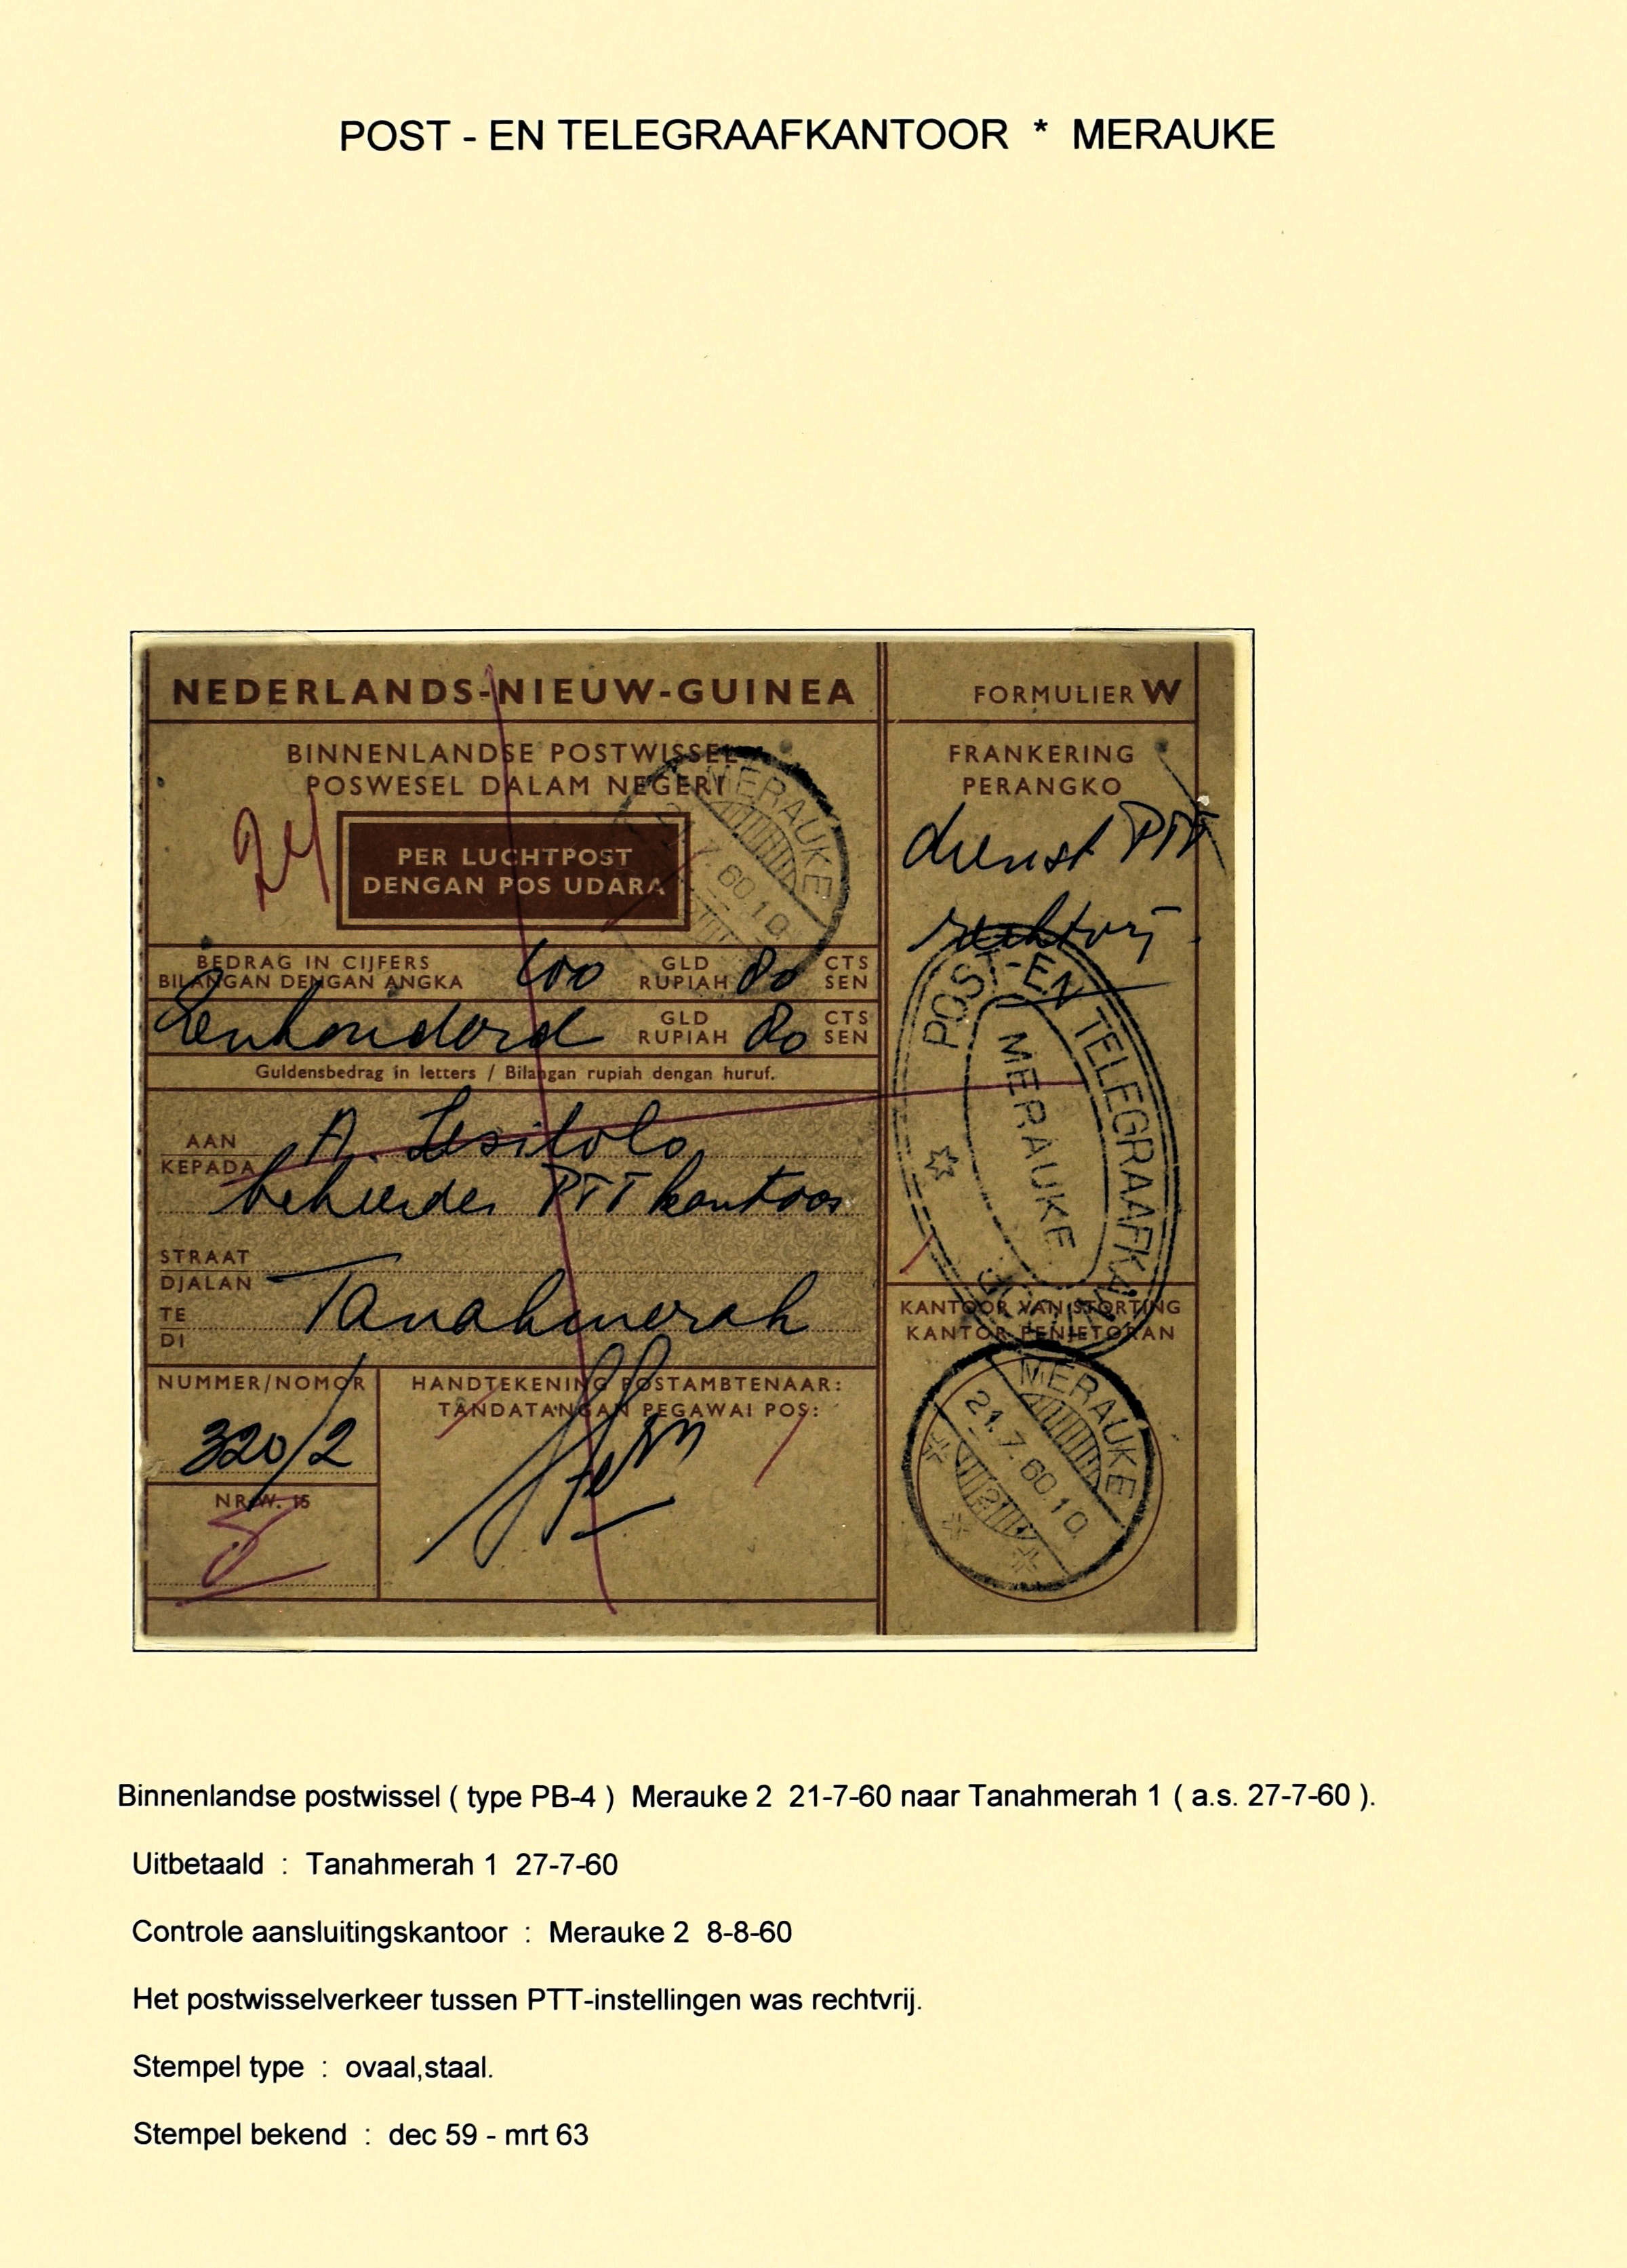 POST - EN TELEGRAAFKANTOOR * MERAUKE
NEDERLANDS-NIEUW-GUINEA
FORMULIER W
BINNENLANDSE POSTWISSEL
POSWESEL DALAM NEGERI
FRANKERING
PERANGKO
PER LUCHTPOST
DENGAN POS UDARA
MERAUKE
21.7.60.10
dienst PTT
rechtvrij
BEDRAG IN CIJFERS
BILANGAN DENGAN ANGKA
100
GLD
RUPIAH
80
CTS
SEN
Eenhonderd
GLD
RUPIAH
80
CTS
SEN
Guldensbedrag in letters / Bilangan rupiah dengan huruf.
POST-EN TELEGRAAFKANTOOR
MERAUKE
AAN
KEPADA
A.
beheerder PTT kantoor
STRAAT
DJALAN
TE
DI
Tanahmerah
KANTOOR VAN STORTING
KANTOR PENJETORAN
NUMMER/NOMOR
320/2
HANDTEKENING POSTAMBTENAAR:
TANDATANGAN PEGAWAI POS:
NR. W. 15
MERAUKE
21.7.60.10
2
Binnenlandse postwissel ( type PB-4 ) Merauke 2 21-7-60 naar Tanahmerah 1 ( a.s. 27-7-60 ).
Uitbetaald : Tanahmerah 1 27-7-60
Controle aansluitingskantoor : Merauke 2 8-8-60
Het postwisselverkeer tussen PTT-instellingen was rechtvrij.
Stempel type : ovaal,staal.
Stempel bekend : dec 59 - mrt 63